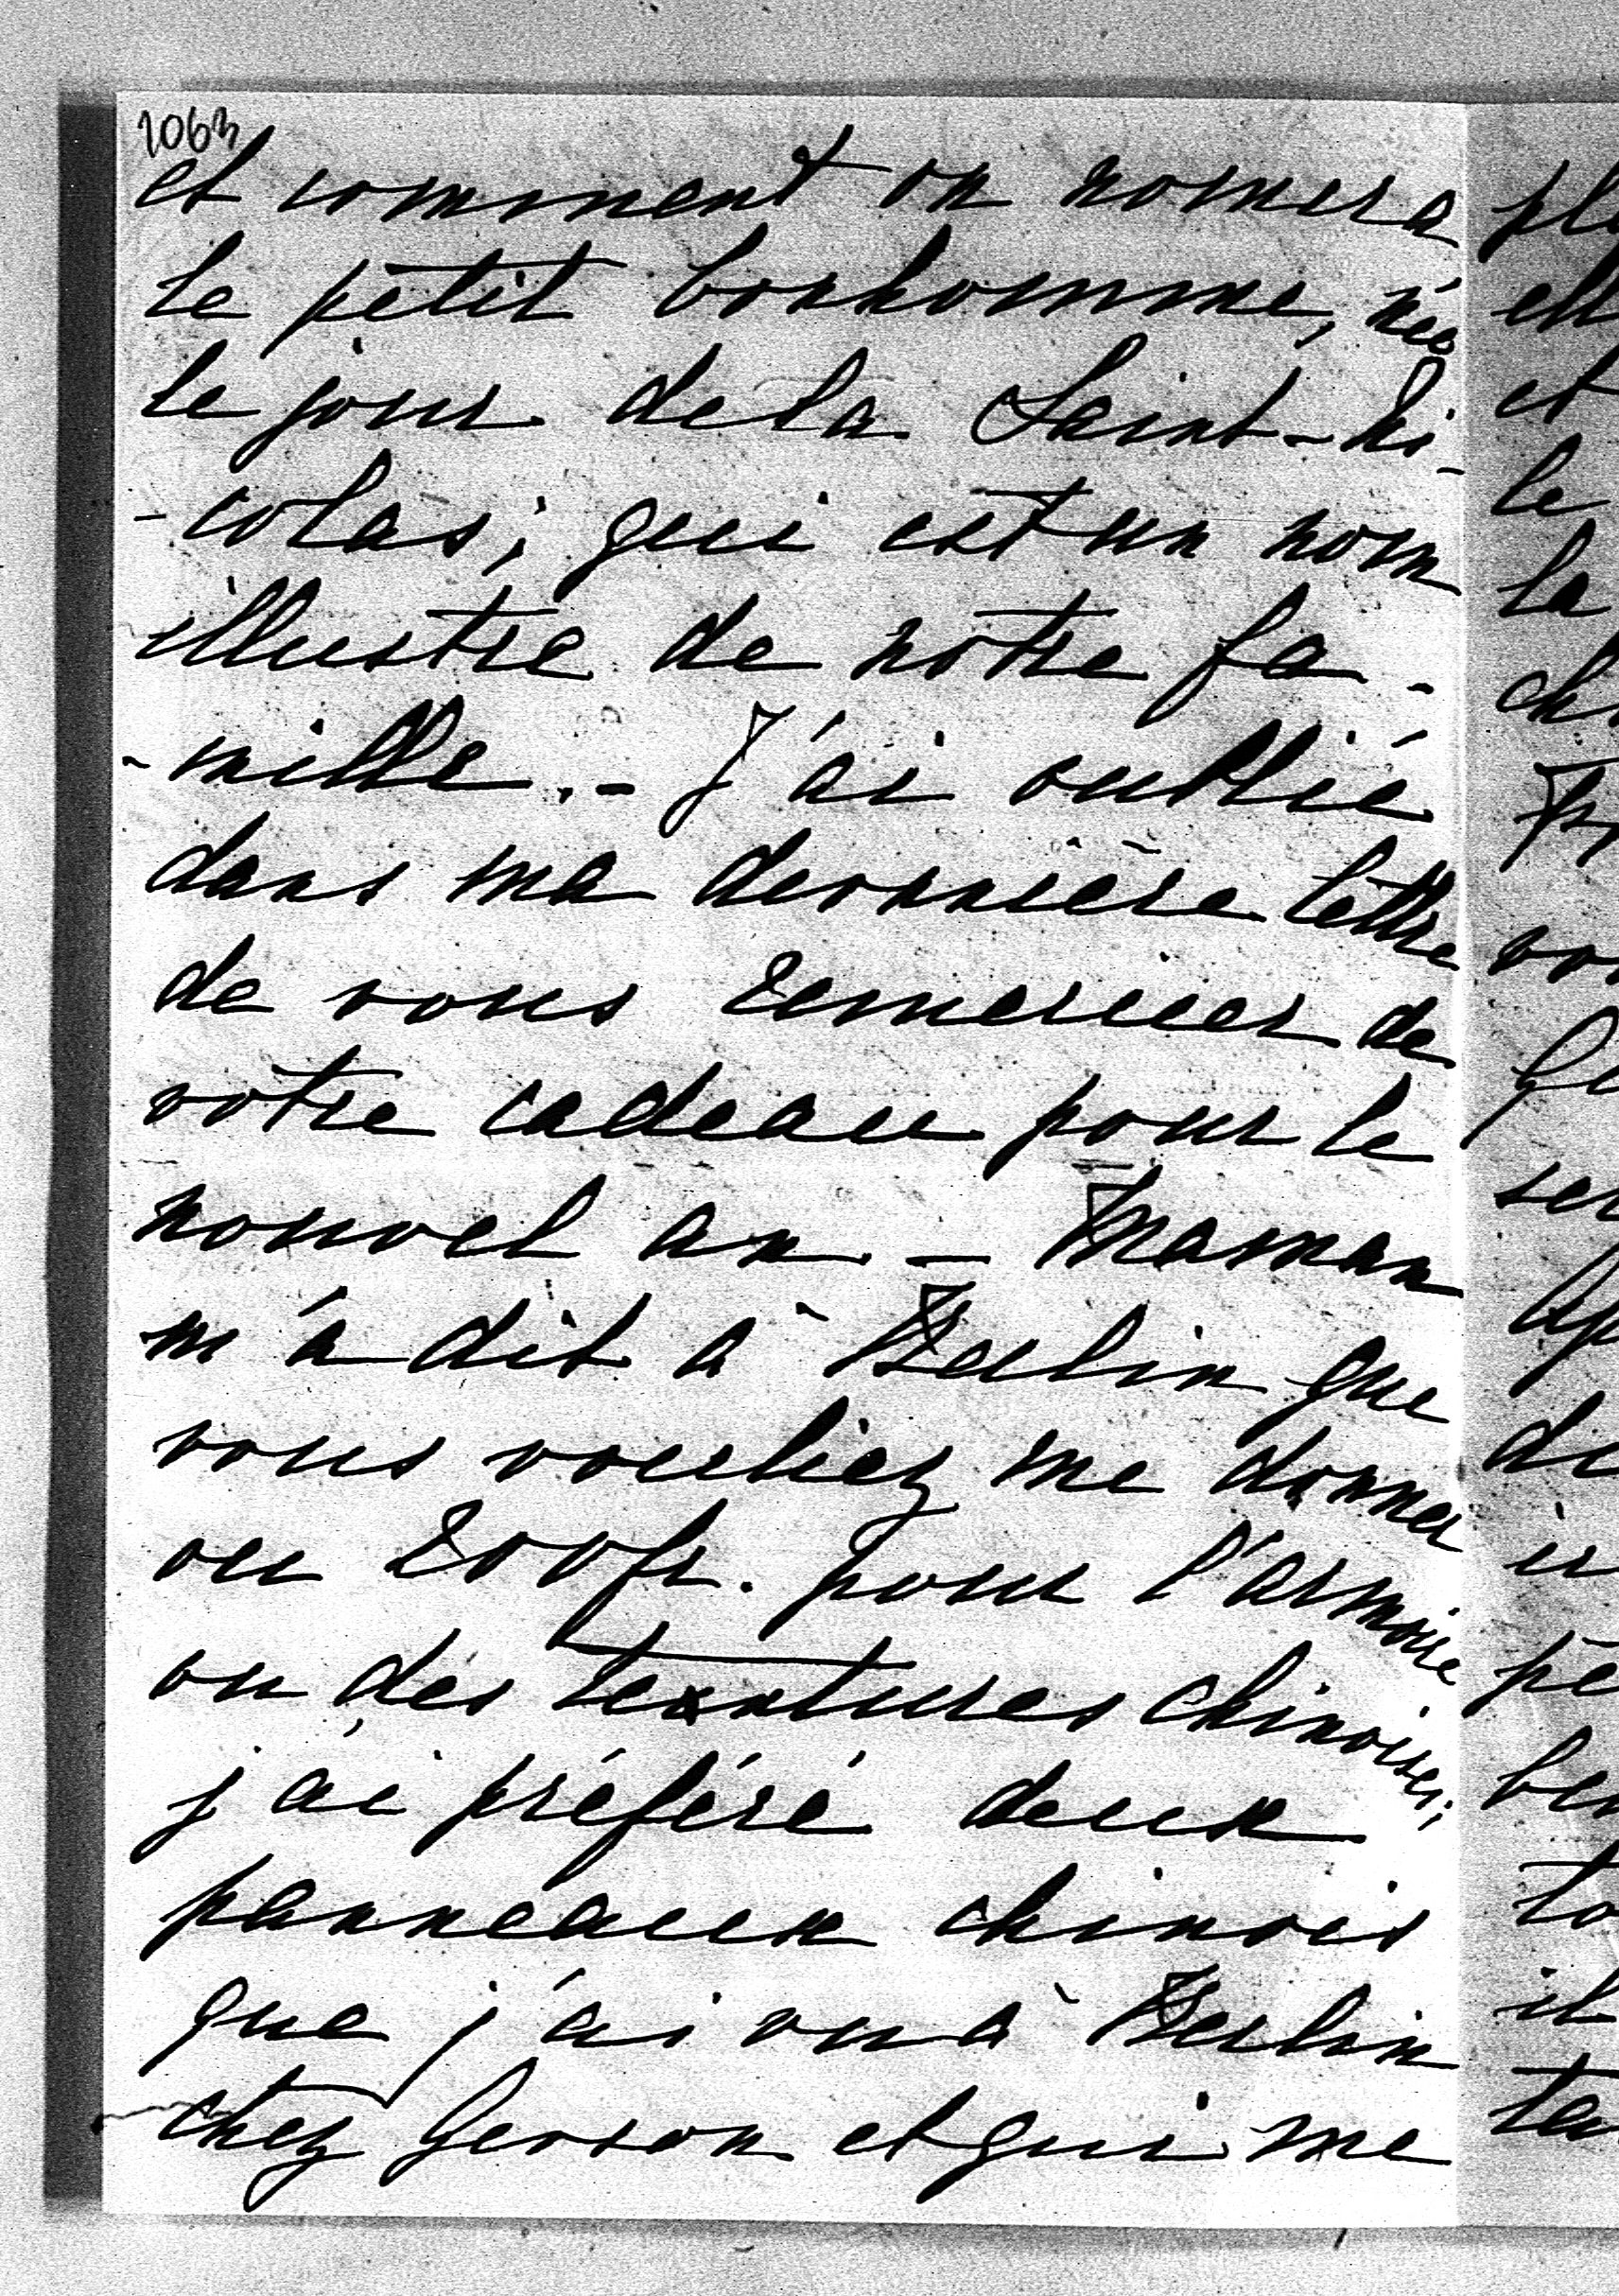 1063
et comment on nomera
le petit bonhomme, née
le jour de la Saint-Ni-
-colas; qui est un nom
illustre de notre fa-
-mille. - J'ai oublié
dans ma dernnière lettre
de vous remercier de
votre cadeau pour le
nouvel an. - Maman
m'a dit à Berlin que
vous vouliez me donner
ou 200 fr. pour l'armoire
ou des tentures chinoises;
j'ai préféré deux
panneaux chinois
que j'ai vu à Berlin
chez Gerson et qui me